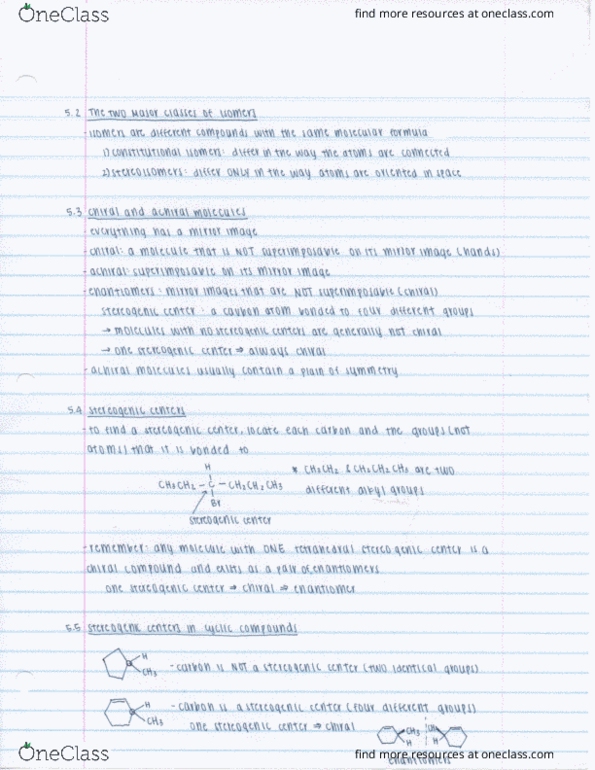 OneClass
find more resources at oneclass.com
5.2 The two major classes of isomers
- isomers are different compounds with the same molecular formula
1) constitutional isomers: differ in the way the atoms are connected
2) stereoisomers: differ ONLY in the way atoms are oriented in space
5.3 chiral and achiral molecules
- everything has a mirror image
- chiral: a molecule that is NOT superimposable on its mirror image (hands)
- achiral: superimposable on its mirror image
- enantiomers: mirror images that are NOT superimposable (chiral)
stereogenic center: a carbon atom bonded to four different groups
→ molecules with no stereogenic centers are generally not chiral
→ one stereogenic center ⇒ always chiral
- achiral molecules usually contain a plain of symmetry
5.4 stereogenic centers
- to find a stereogenic center, locate each carbon and the groups (not
atoms) that it is bonded to
H
* CH3CH2 & CH2CH2CH3 are two
CH3CH2 - C - CH2CH2CH3
different alkyl groups
Br
stereogenic center
- remember: any molecule with ONE tetrahedral stereogenic center is a
chiral compound and exists as a pair of enantiomers
one stereogenic center ⇒ chiral ⇒ enantiomer
5.5 stereogenic centers in cyclic compounds
H
CH3
- carbon is NOT a stereogenic center (two identical groups)
H
CH3
- carbon is a stereogenic center (four different groups)
one stereogenic center ⇒ chiral
CH3
H
CH3
H
enantiomers
OneClass
find more resources at oneclass.com